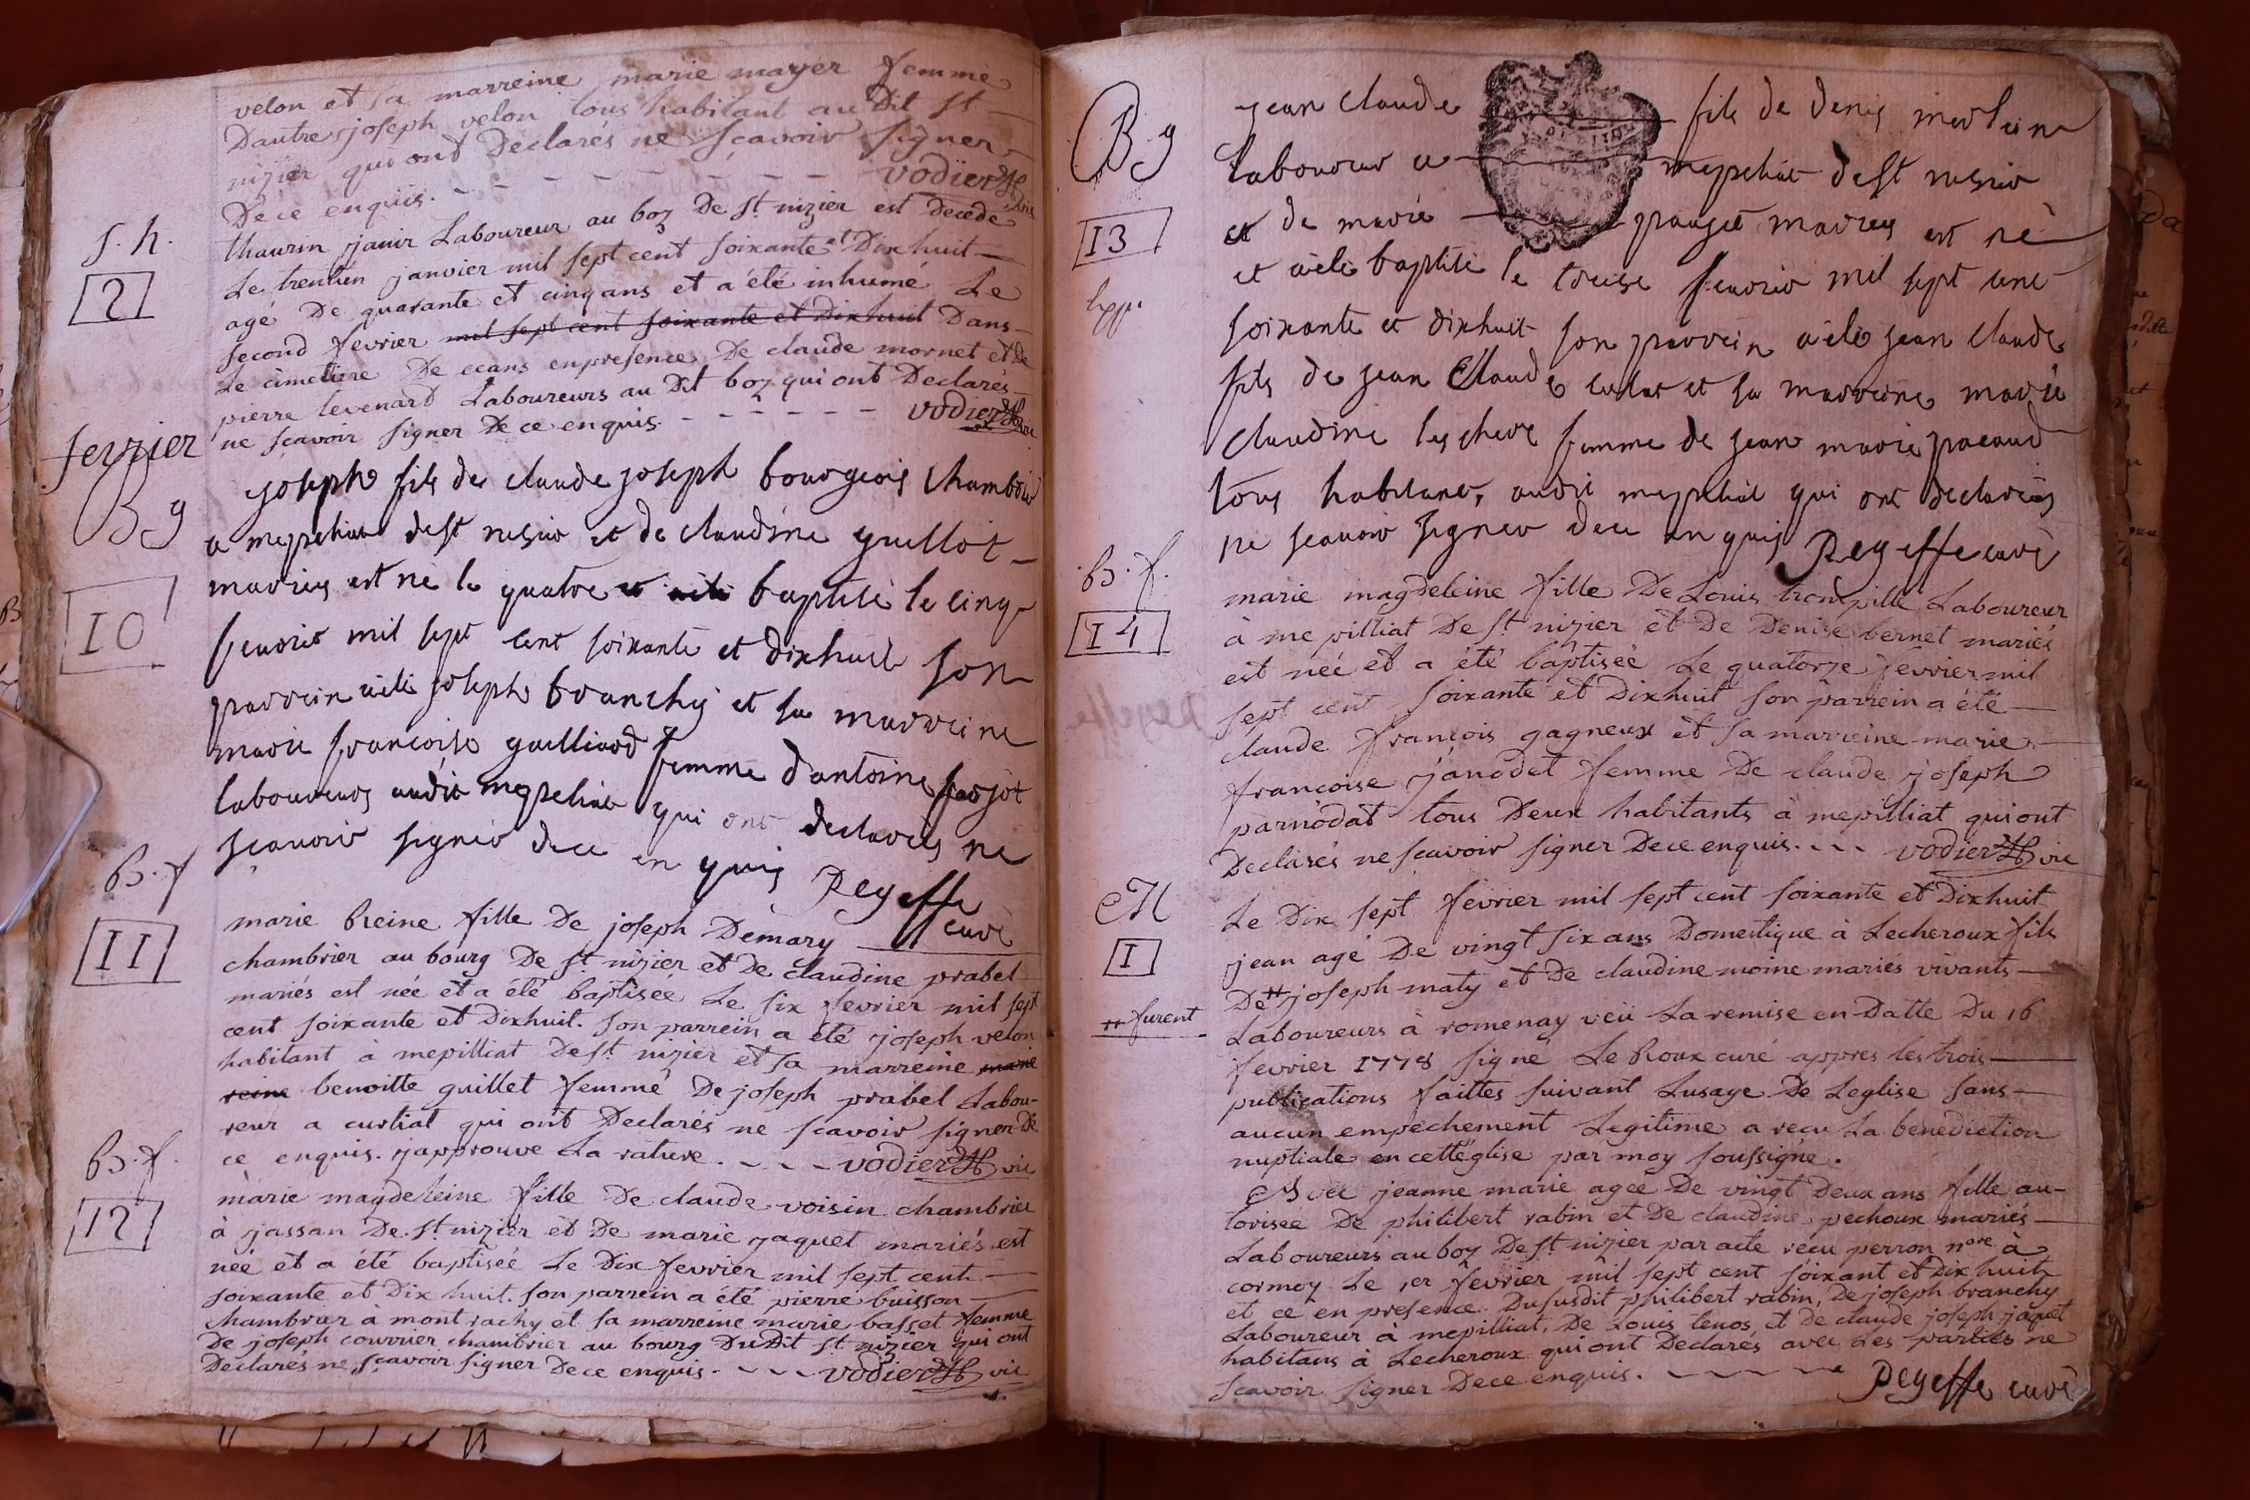 velon et sa marreine marie mayer femme
Dautre joseph velon tous habitant au Dit st
nizier qui ont Declarés ne sçavoir signer
Dece enquis. vodier vic
S. h.
2
thaurin janin Laboureur au boz De st nizier est Decede
Le trentiem janvier mil sept cent soixante et Dixhuit
agé De quarante et cinq ans et a été inhumé Le
second fevrier mil sept cent soixante et Dixhuit Dans
Le cimetiere De ceans enpresence De claude mornet et De
pierre levenard Laboureurs au Dit boz qui ont Declarés
ne sçavoir signer De ce enquis. vodier vic
fevrier
B g
10
joseph fils de claude joseph bourgeois chambrier
a mepeliat dest nisier et de claudine guillot
mariés est né le quatre et a été baptisé le cinq
fevrier mil sept cent soixante et dixhuit son
parrein a été joseph branchy et sa marreine
marie francoise guilliard femme dantoine
laboureurs audit mepeliat qui ont declarés ne
sçavoir signer dece en quis Pegeffe
curé
B. f
11
marie Reine fille De joseph Demary
chambrier au bourg De st nizier et De claudine prabel
mariés est née et a été baptisée Le six fevrier mil sept
cent soixante et Dixhuit. Son parrein a été joseph velon
habitant à mepilliat De st nizier et sa marreine marie
reine benoitte guillet femme De joseph prabel Labou-
reur a curtiat qui ont Declarés ne sçavoir signer De
ce enquis. japprouve La rature. vodier vic
B. f.
12
marie magdeleine fille De claude voisin chambrier
à jassan De st nizier et De marie jaquet mariés est
née et a été baptisée Le Dix fevrier mil sept cent
soixante et Dix huit. son parrein a été pierre buisson
chambrier à mont rachy et sa marreine marie basset femme
De joseph courrier chambrier au bourg DuDit st nizier qui ont
Declarés ne sçavoir signer Dece enquis. vodier vic
B g
13
jean claude fils de denis merlin
laboureur a mepeliat dest nisier
et de marie mariés est né
et a été baptisé le treise fevrier mil sept cent
soixante et dixhuit son parrein a été jean claude
fils de jean claude et sa marreine marie
claudine leschere femme de jean marie pacaud
tous habitants audit mepeliat qui ont declarés
ne scavoir signer dece en quis Pegeffe curé
B. f.
14
marie magdeleine fille De Louis trompille Laboureur
à mepilliat De st nizier et De Denise bernet mariés
est née et a été baptisée Le quatorze fevrier mil
sept cent soixante et Dixhuit son parrein a été
claude françois gagneux et sa marreine marie
francoise janodet femme De claude joseph
parnodat tous Deux habitants à mepilliat qui ont
Declarés ne scavoir signer Dece enquis. vodier vic
M
1
Le Dix sept fevrier mil sept cent soixante et Dixhuit
jean agé De vingt six ans Domestique à Lecheroux fils
De joseph maty et De claudine moine mariés vivants
furent
Laboureurs à romenay veü La remise en Datte Du 16
fevrier 1778 signé Le Roux curé appres les trois
publications faittes suivant Lusage De Leglise sans
aucun empechement Legitime a recu La benediction
nuptiale en cette église par moy soussigné.
Avec jeanne marie agée De vingt Deux ans fille au-
torisée De philibert rabin et De claudine pechoux mariés
Laboureurs au boz De st nizier par acte reçu perron nore à
cormoz Le 1er fevrier mil sept cent soixant et Dixhuit
et ce en presence Dususdit philibert rabin, De joseph branchy
Laboureur à mepilliat, De Louis et De claude joseph jaquet
habitans à Lecheroux qui ont Declarés avec Les parties ne
scavoir signer Dece enquis. Pegeffe curé